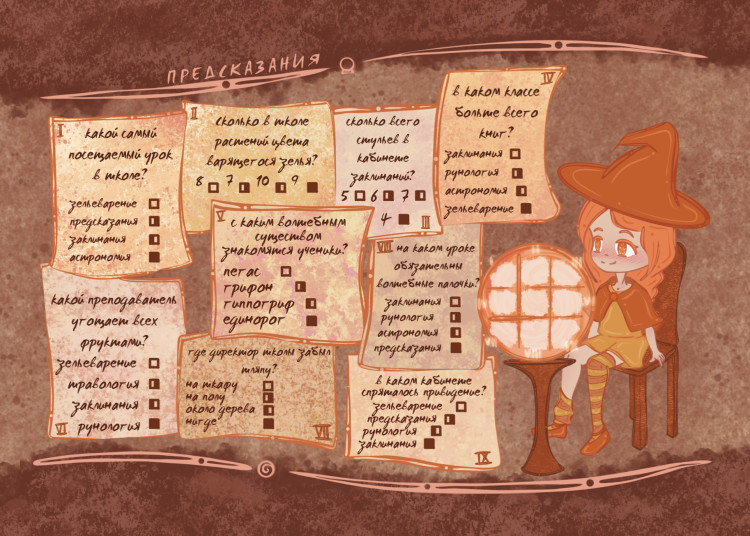 ПРЕДСКАЗАНИЯ
I
какой самый
посещаемый урок
в школе?
зельеварение
предсказания
заклинания
астрономия
II
сколько в школе
растений цвета
варящегося зелья?
8 7 10 9
сколько всего
стульев в
кабинете
заклинаний?
5 6 7
4
III
IV
в каком классе
больше всего
книг?
заклинания
рунология
астрономия
зельеварение
V
с каким волшебным
существом
знакомятся ученики?
пегас
грифон
гиппогриф
единорог
какой преподаватель
угощает всех
фруктами?
зельеварение
травология
заклинания
рунология
VI
где директор школы забыл
шляпу?
на шкафу
на полу
около дерева
нигде
VII
VIII на каком уроке
обязательны
волшебные палочки?
заклинания
рунология
астрономия
предсказания
в каком кабинете
спряталось привидение?
зельеварение
предсказания
рунология
заклинания
IX